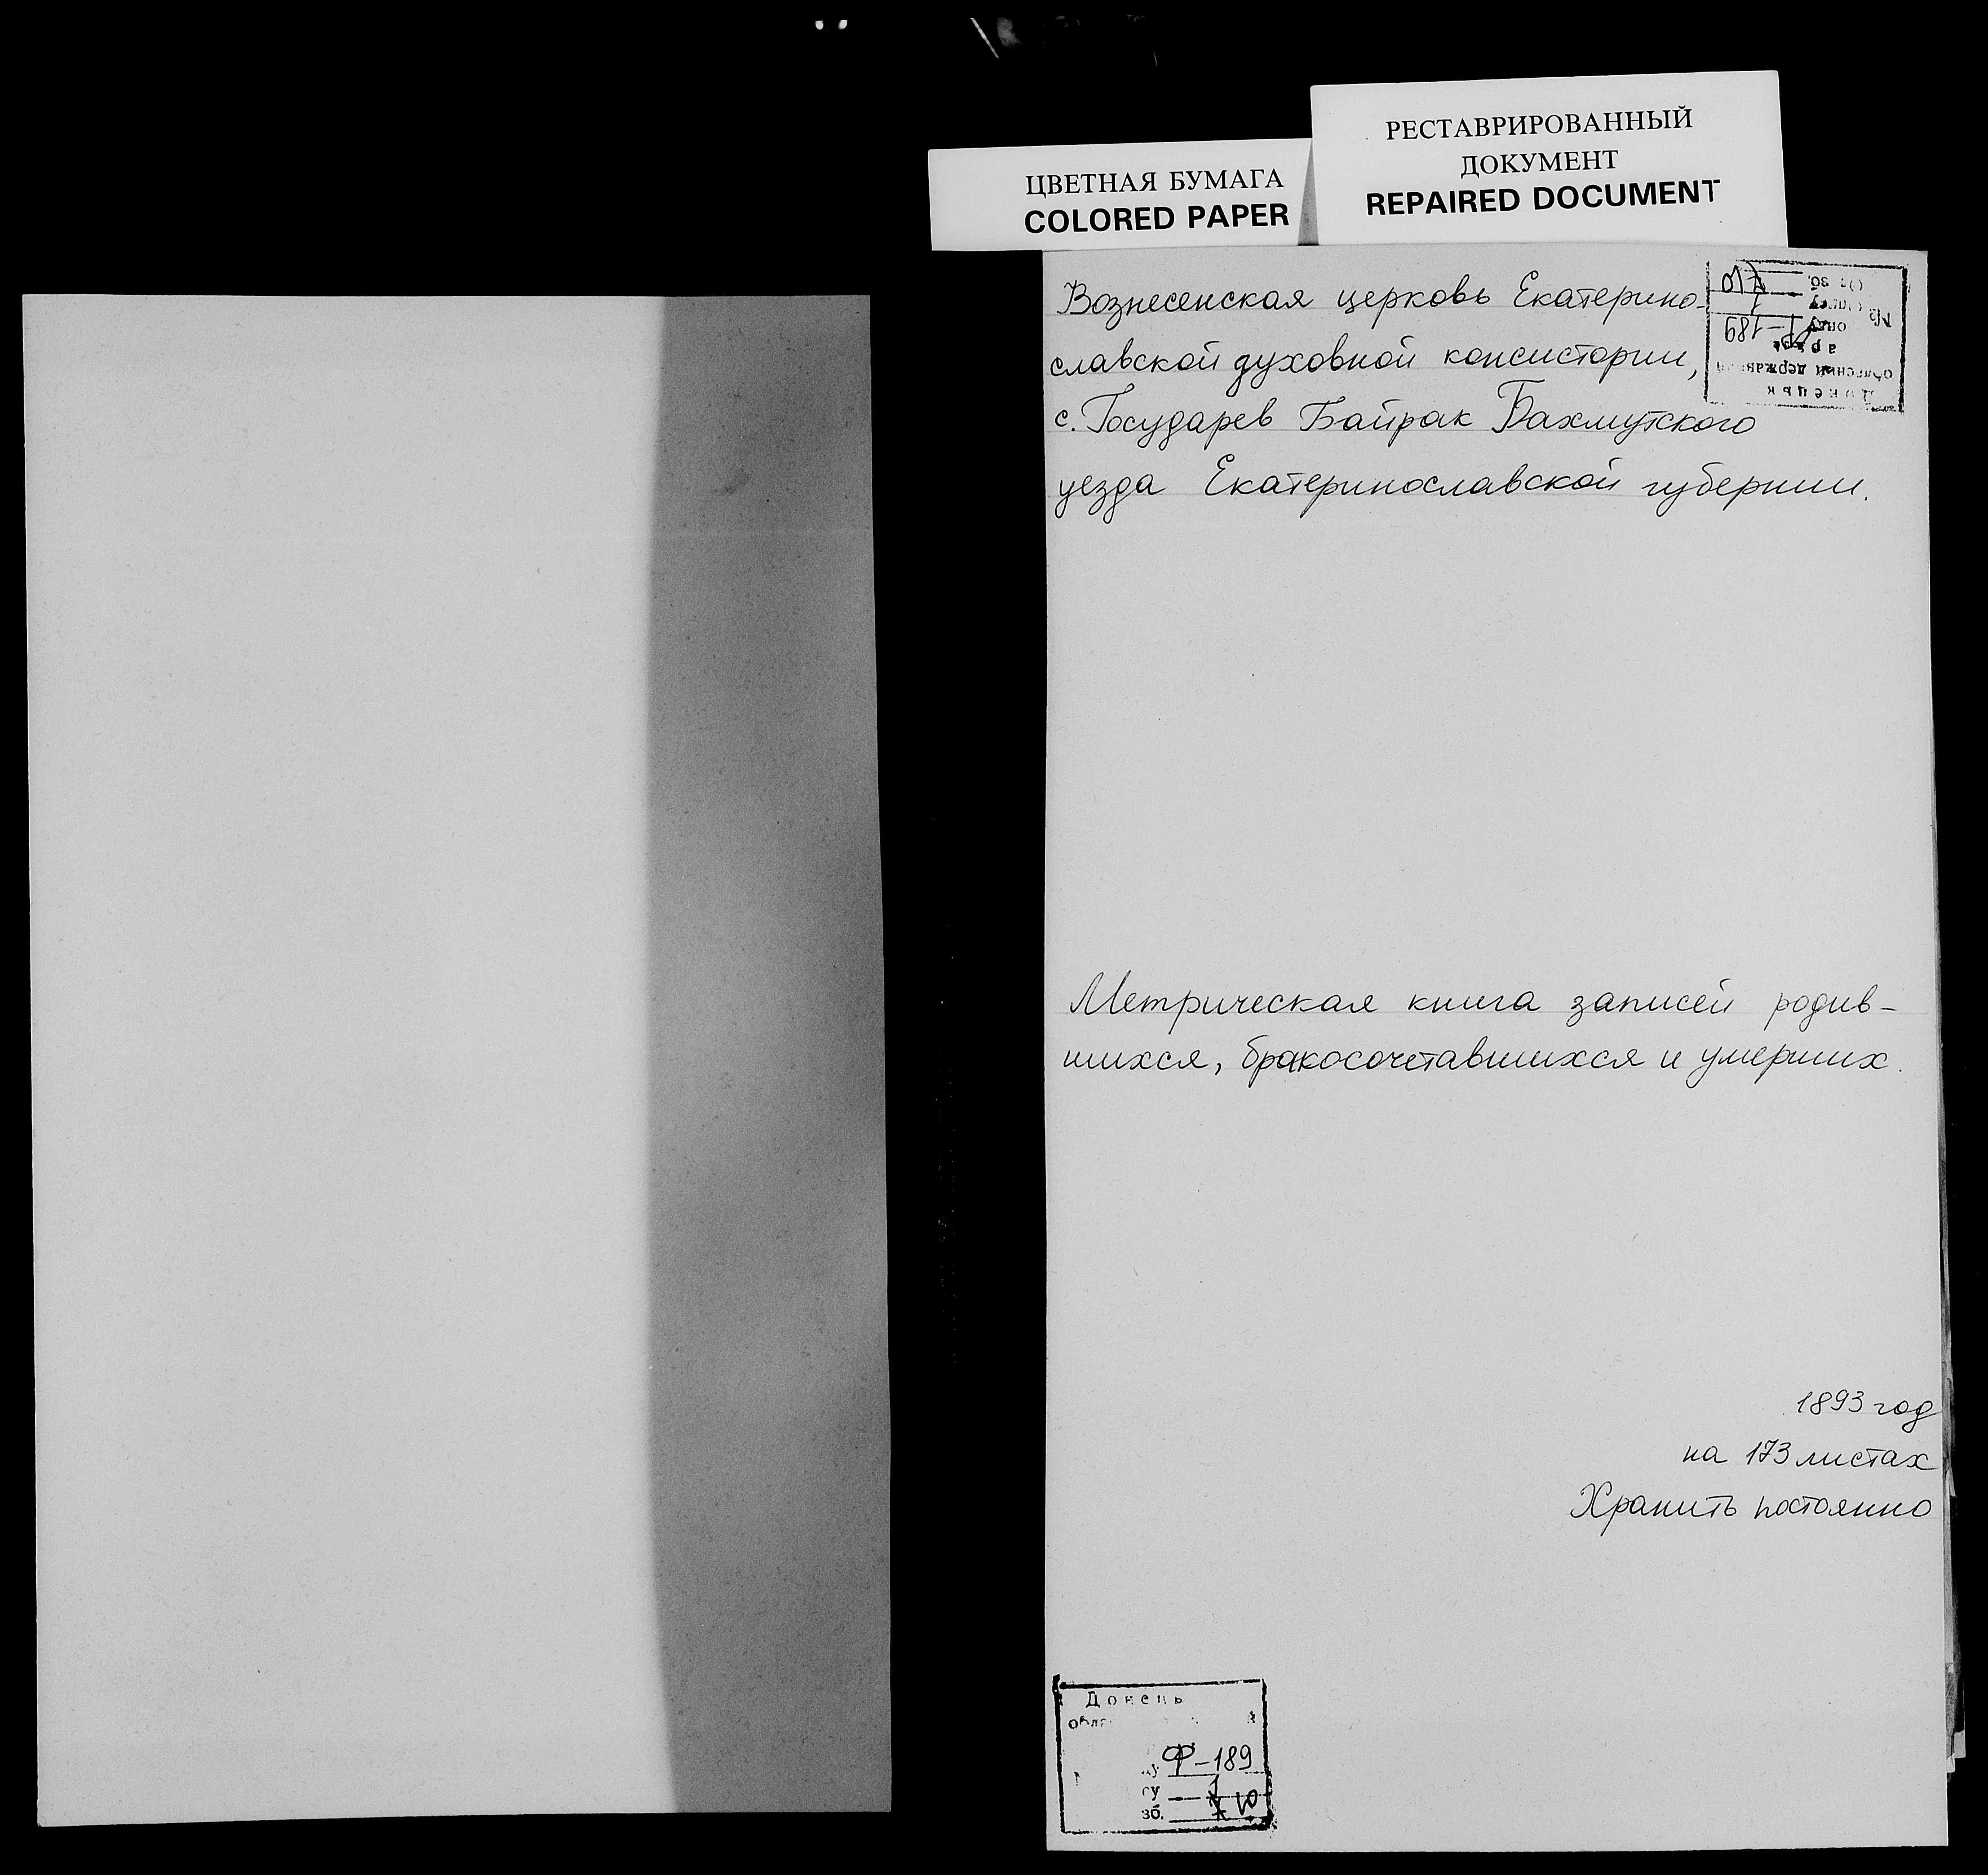 ЦВЕТНАЯ БУМАГА
COLORED PAPER
РЕСТАВРИРОВАННЫЙ
ДОКУМЕНТ
REPAIRED DOCUMENT
Вознесенская церковь Екатерино-
славской духовной консистории,
с. Государев Байрак Бахмутского
уезда Екатеринославской губернии.
Метрическая книга записей родив-
шихся, бракосочетавшихся и умерших.
1893 год
на 173 листах
Хранить постоянно
Донець
Ф-189
1
зб. 10